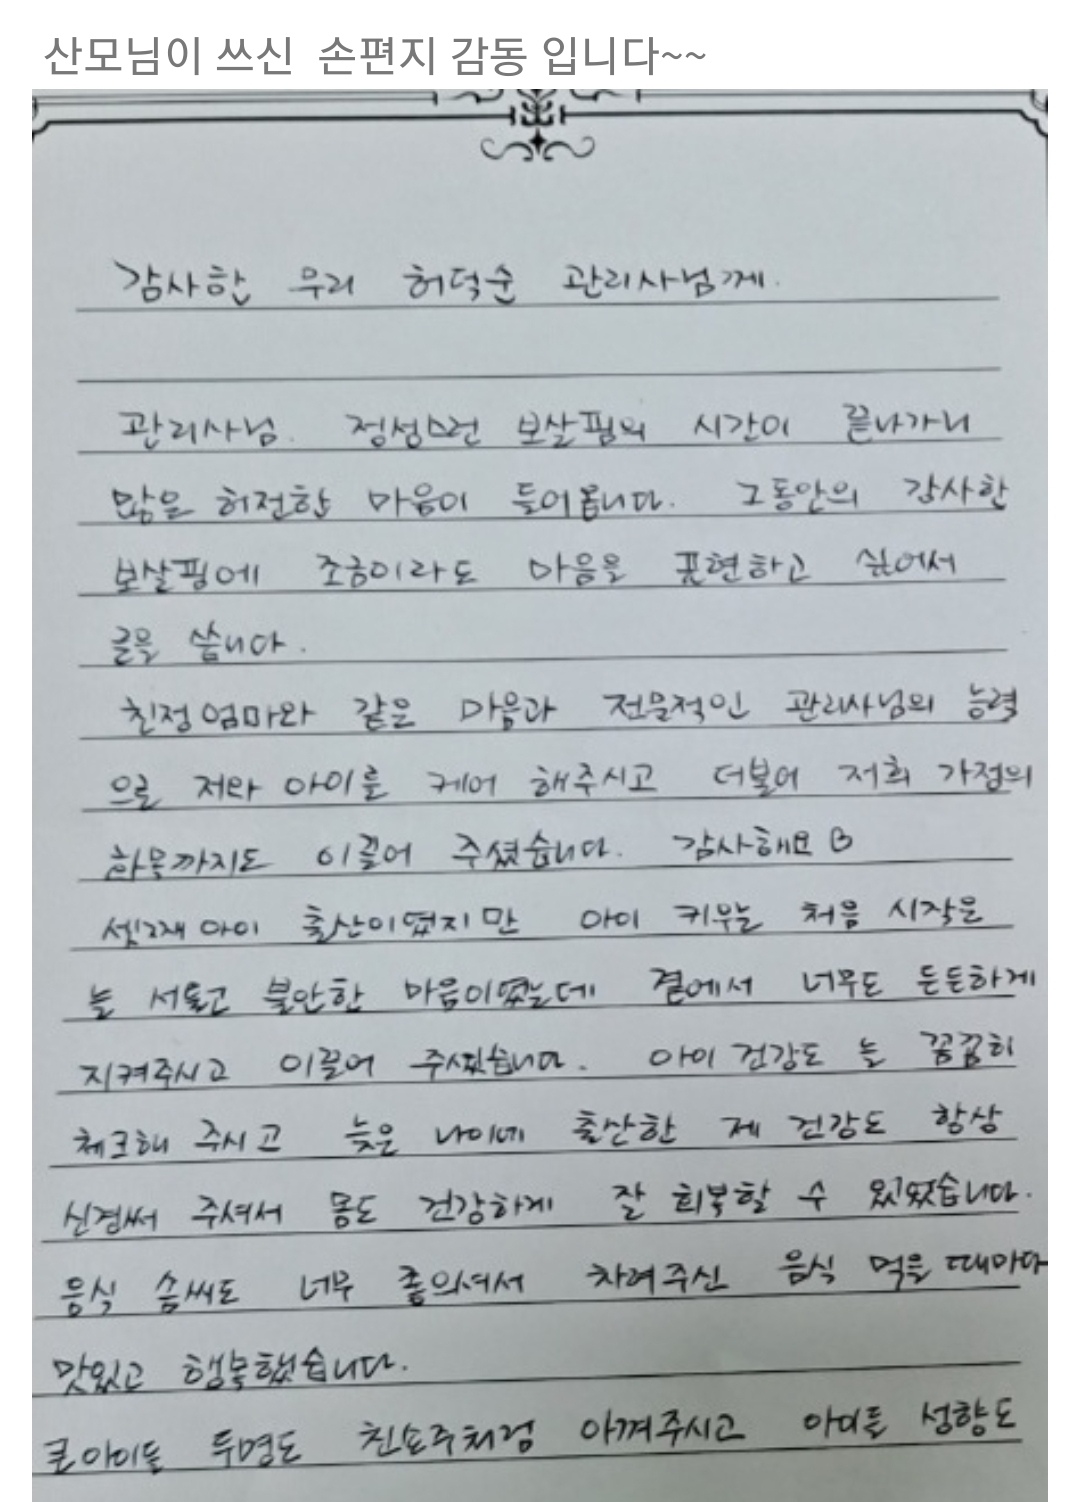 산모님이 쓰신 손편지 감동 입니다~~
감사한 우리 허덕순 관리사님께.
관리사님. 정성스런 보살핌의 시간이 끝나가니
많은 허전한 마음이 들어옵니다. 그동안의 감사한
보살핌에 조금이라도 마음을 표현하고 싶어서
글을 씁니다.
친정엄마와 같은 마음과 전문적인 관리사님의 능력
으로 저와 아이를 케어 해주시고 더불어 저희 가정의
화목까지도 이끌어 주셨습니다. 감사해요
셋째아이 출산이였지만 아이 키우는 처음 시작은
늘 서툴고 불안한 마음이였는데 곁에서 너무도 든든하게
지켜주시고 이끌어 주셨습니다. 아이 건강도 늘 꼼꼼히
체크해 주시고 늦은 나이에 출산한 제 건강도 항상
신경써 주셔서 몸도 건강하게 잘 회복할 수 있었습니다.
음식 솜씨도 너무 좋으셔서 차려주신 음식 먹을때마다
맛있고 행복했습니다.
큰아이들 두명도 친손주처럼 아껴주시고 아이들 성향도